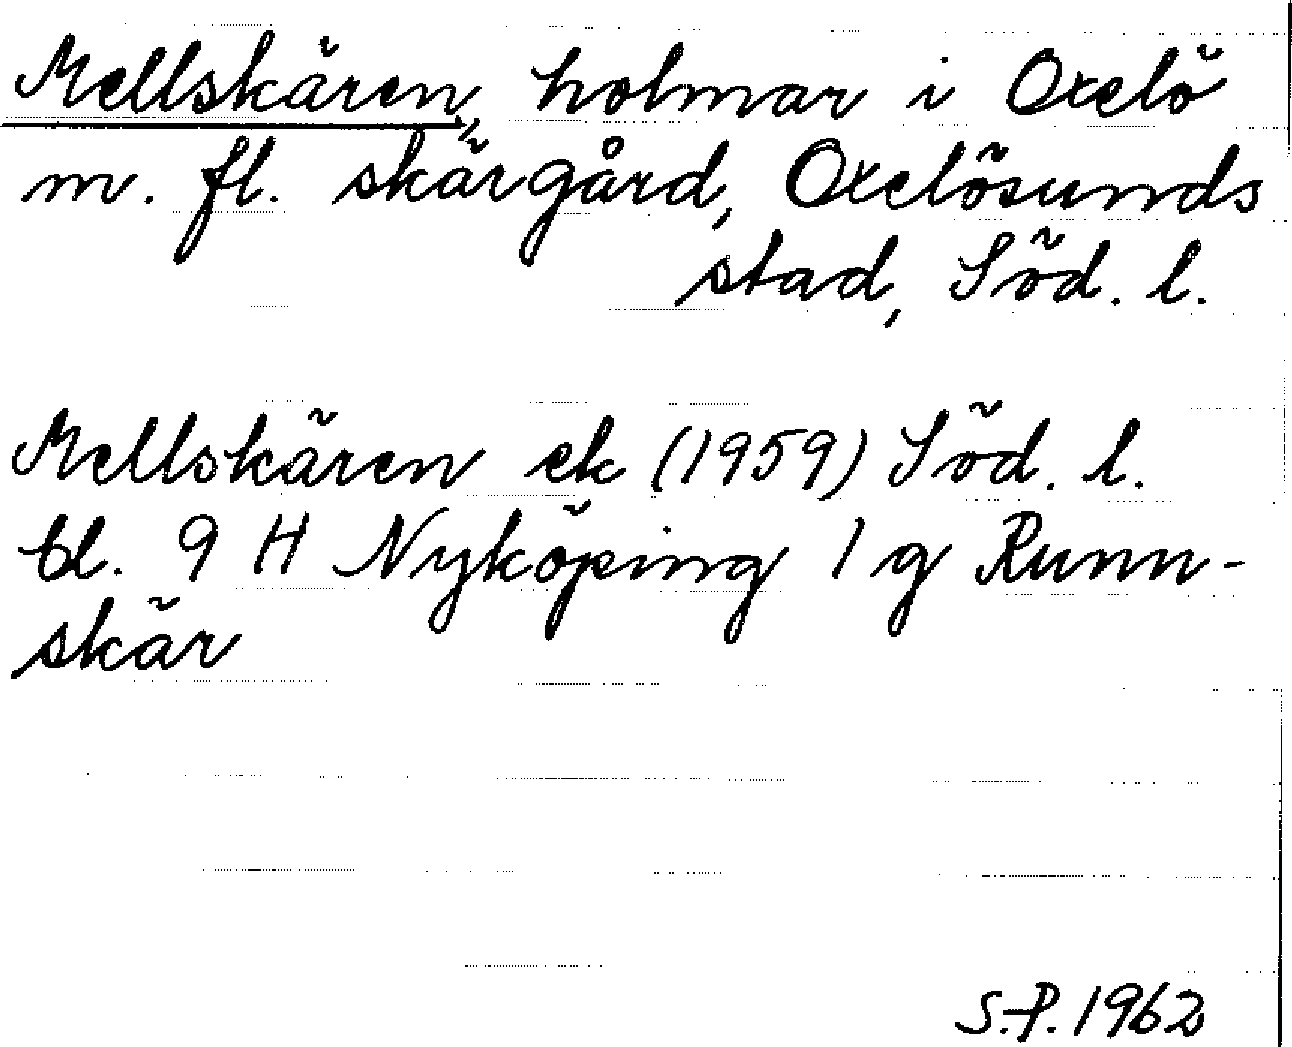 Mellskären, holmar i Oxelö
m. fl. skärgård, Oxelösunds
stad, Söd. l.
Mellskären ek (1959) Söd. l.
bl. 9 H Nyköping 1 g Runn-
skär
S.P. 1962